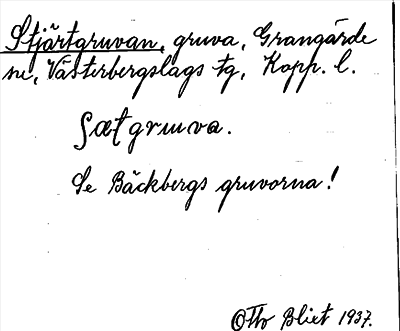 Stjärtgruvan, gruva, Grangärde
sn, Västerbergslags tg, Kopp. l.
ʃætgruva.
Se Bäckbergs gruvorna!
Otto Blixt 1937.